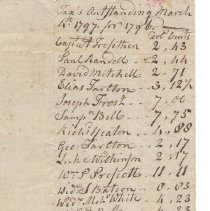 Tax's Outstanding March
4th 1797. for 1796.
Dol Cents
2, 43
Paul Randell -- 2, 44
David Mitchell 2, 71
Elias Tarlton -- 3, 12½
Joseph Frost - 7, 06
Samll Bell - 7, 75
Richd Yeaton - 4, 88
Geo: Tarlton -- 2, 17
Luke Wilkinson 2, 17
Wm P 11, 11
Batson -- 0, 03
White - 4, 23